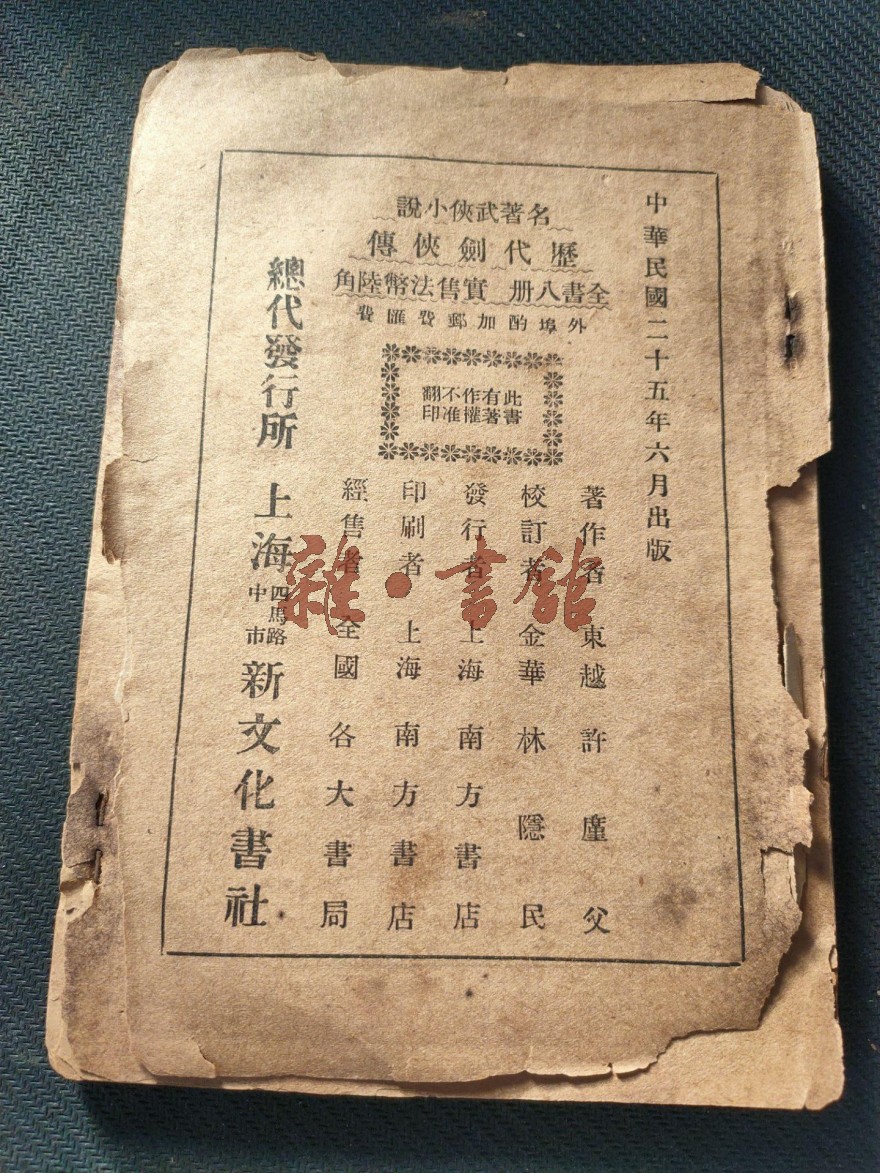 中華民國二十五年六月出版
名著武俠小說
歷代劍俠傳
全書八册 實售法幣陸角
外埠酌加郵費匯費
此書
有著
作權
不准
翻印
著作者 東越許廑父
校訂者 金華林隱民
發行者 上海南方書店
印刷者 上海南方書店
經售者 全國各大書局
總代發行所 上海四馬路中市新文化書社
雜·書館